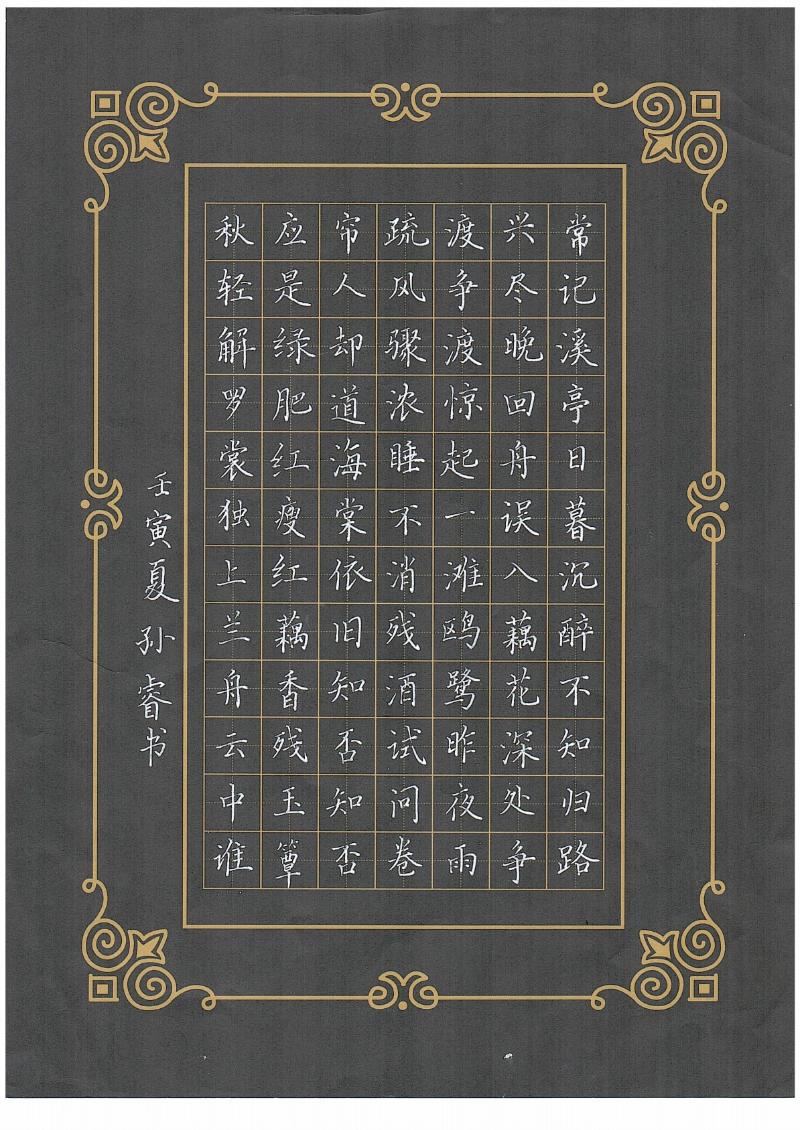 常记溪亭日暮沉醉不知归路
兴尽晚回舟误入藕花深处争
渡争渡惊起一滩鸥鹭昨夜雨
疏风骤浓睡不消残酒试问卷
帘人却道海棠依旧知否知否
应是绿肥红瘦红藕香残玉簟
秋轻解罗裳独上兰舟云中谁
壬寅夏孙睿书